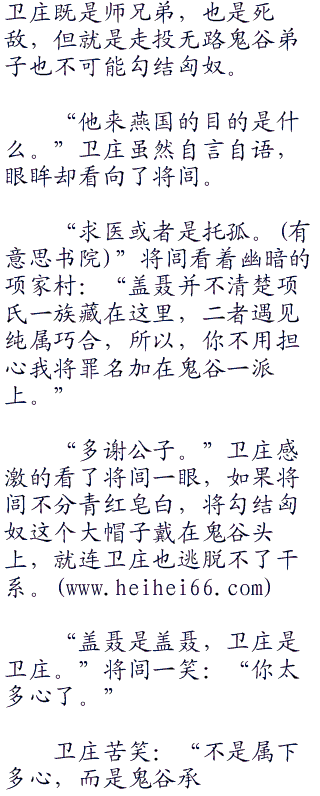 卫庄既是师兄弟，也是死
敌，但就是走投无路鬼谷弟
子也不可能勾结匈奴。
“他来燕国的目的是什
么。”卫庄虽然自言自语，
眼眸却看向了将闾。
“求医或者是托孤。(有
意思书院)”将闾看着幽暗的
项家村：“盖聂并不清楚项
氏一族藏在这里，二者遇见
纯属巧合，所以，你不用担
心我将罪名加在鬼谷一派
上。”
“多谢公子。”卫庄感
激的看了将闾一眼，如果将
闾不分青红皂白，将勾结匈
奴这个大帽子戴在鬼谷头
上，就连卫庄也逃脱不了干
系。(www.heihei66.com)
“盖聂是盖聂，卫庄是
卫庄。”将闾一笑：“你太
多心了。”
卫庄苦笑：“不是属下
多心，而是鬼谷承